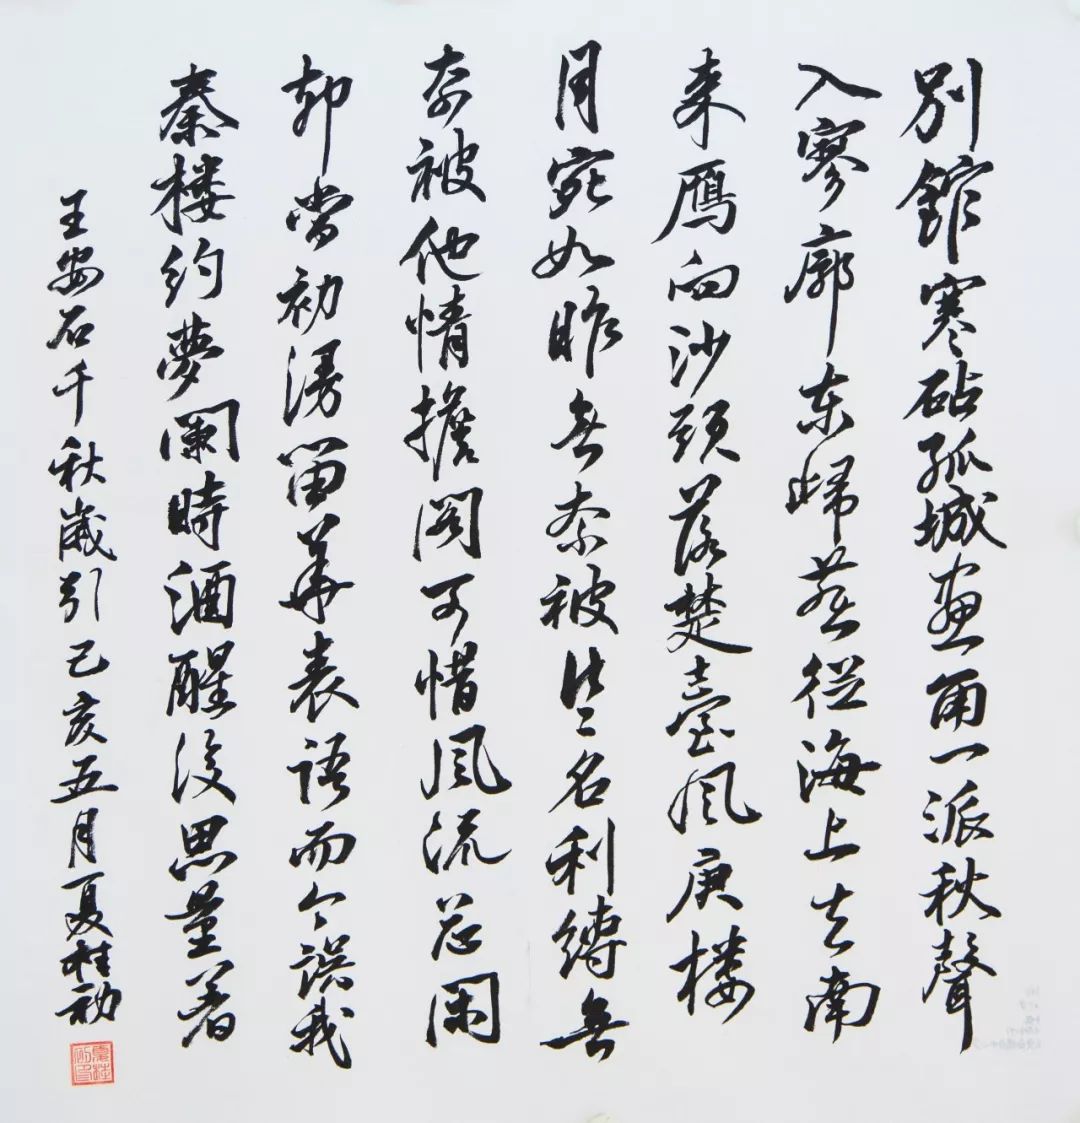 別館寒砧孤城畫角一派秋聲
入寥廓东歸燕從海上去南
来雁向沙頭落楚臺風庾楼
月宛如昨無奈被些名利縛無
奈被他情擔閣可惜風流总閑
却當初漫留華表語而今誤我
秦楼約夢闌時酒醒後思量着
王安石千秋歲引己亥五月夏桂初
夏桂初印